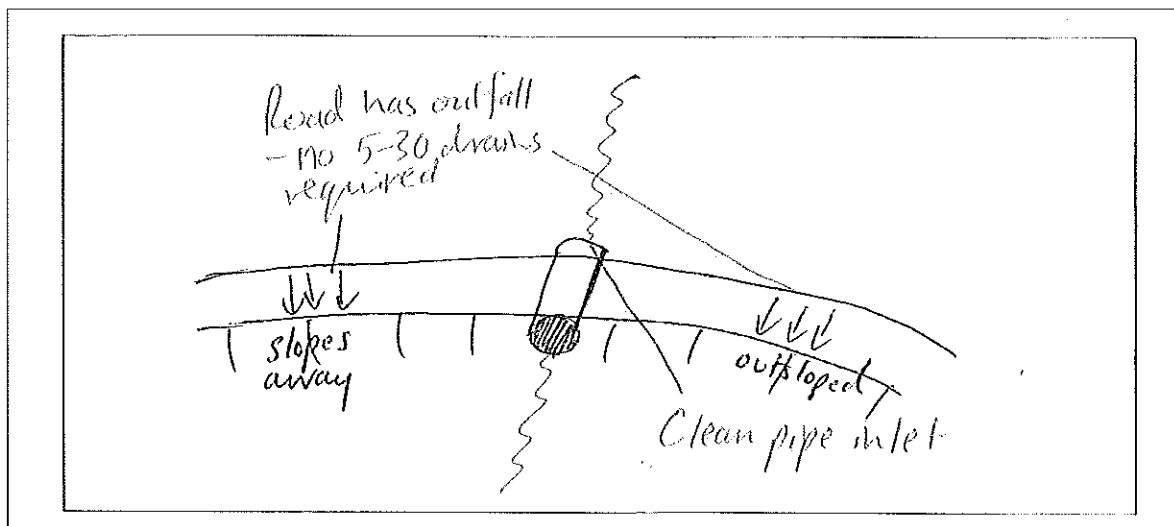 Road has outfall
- no 5-30 drains
required
slopes
away
outsloped
Clean pipe inlet